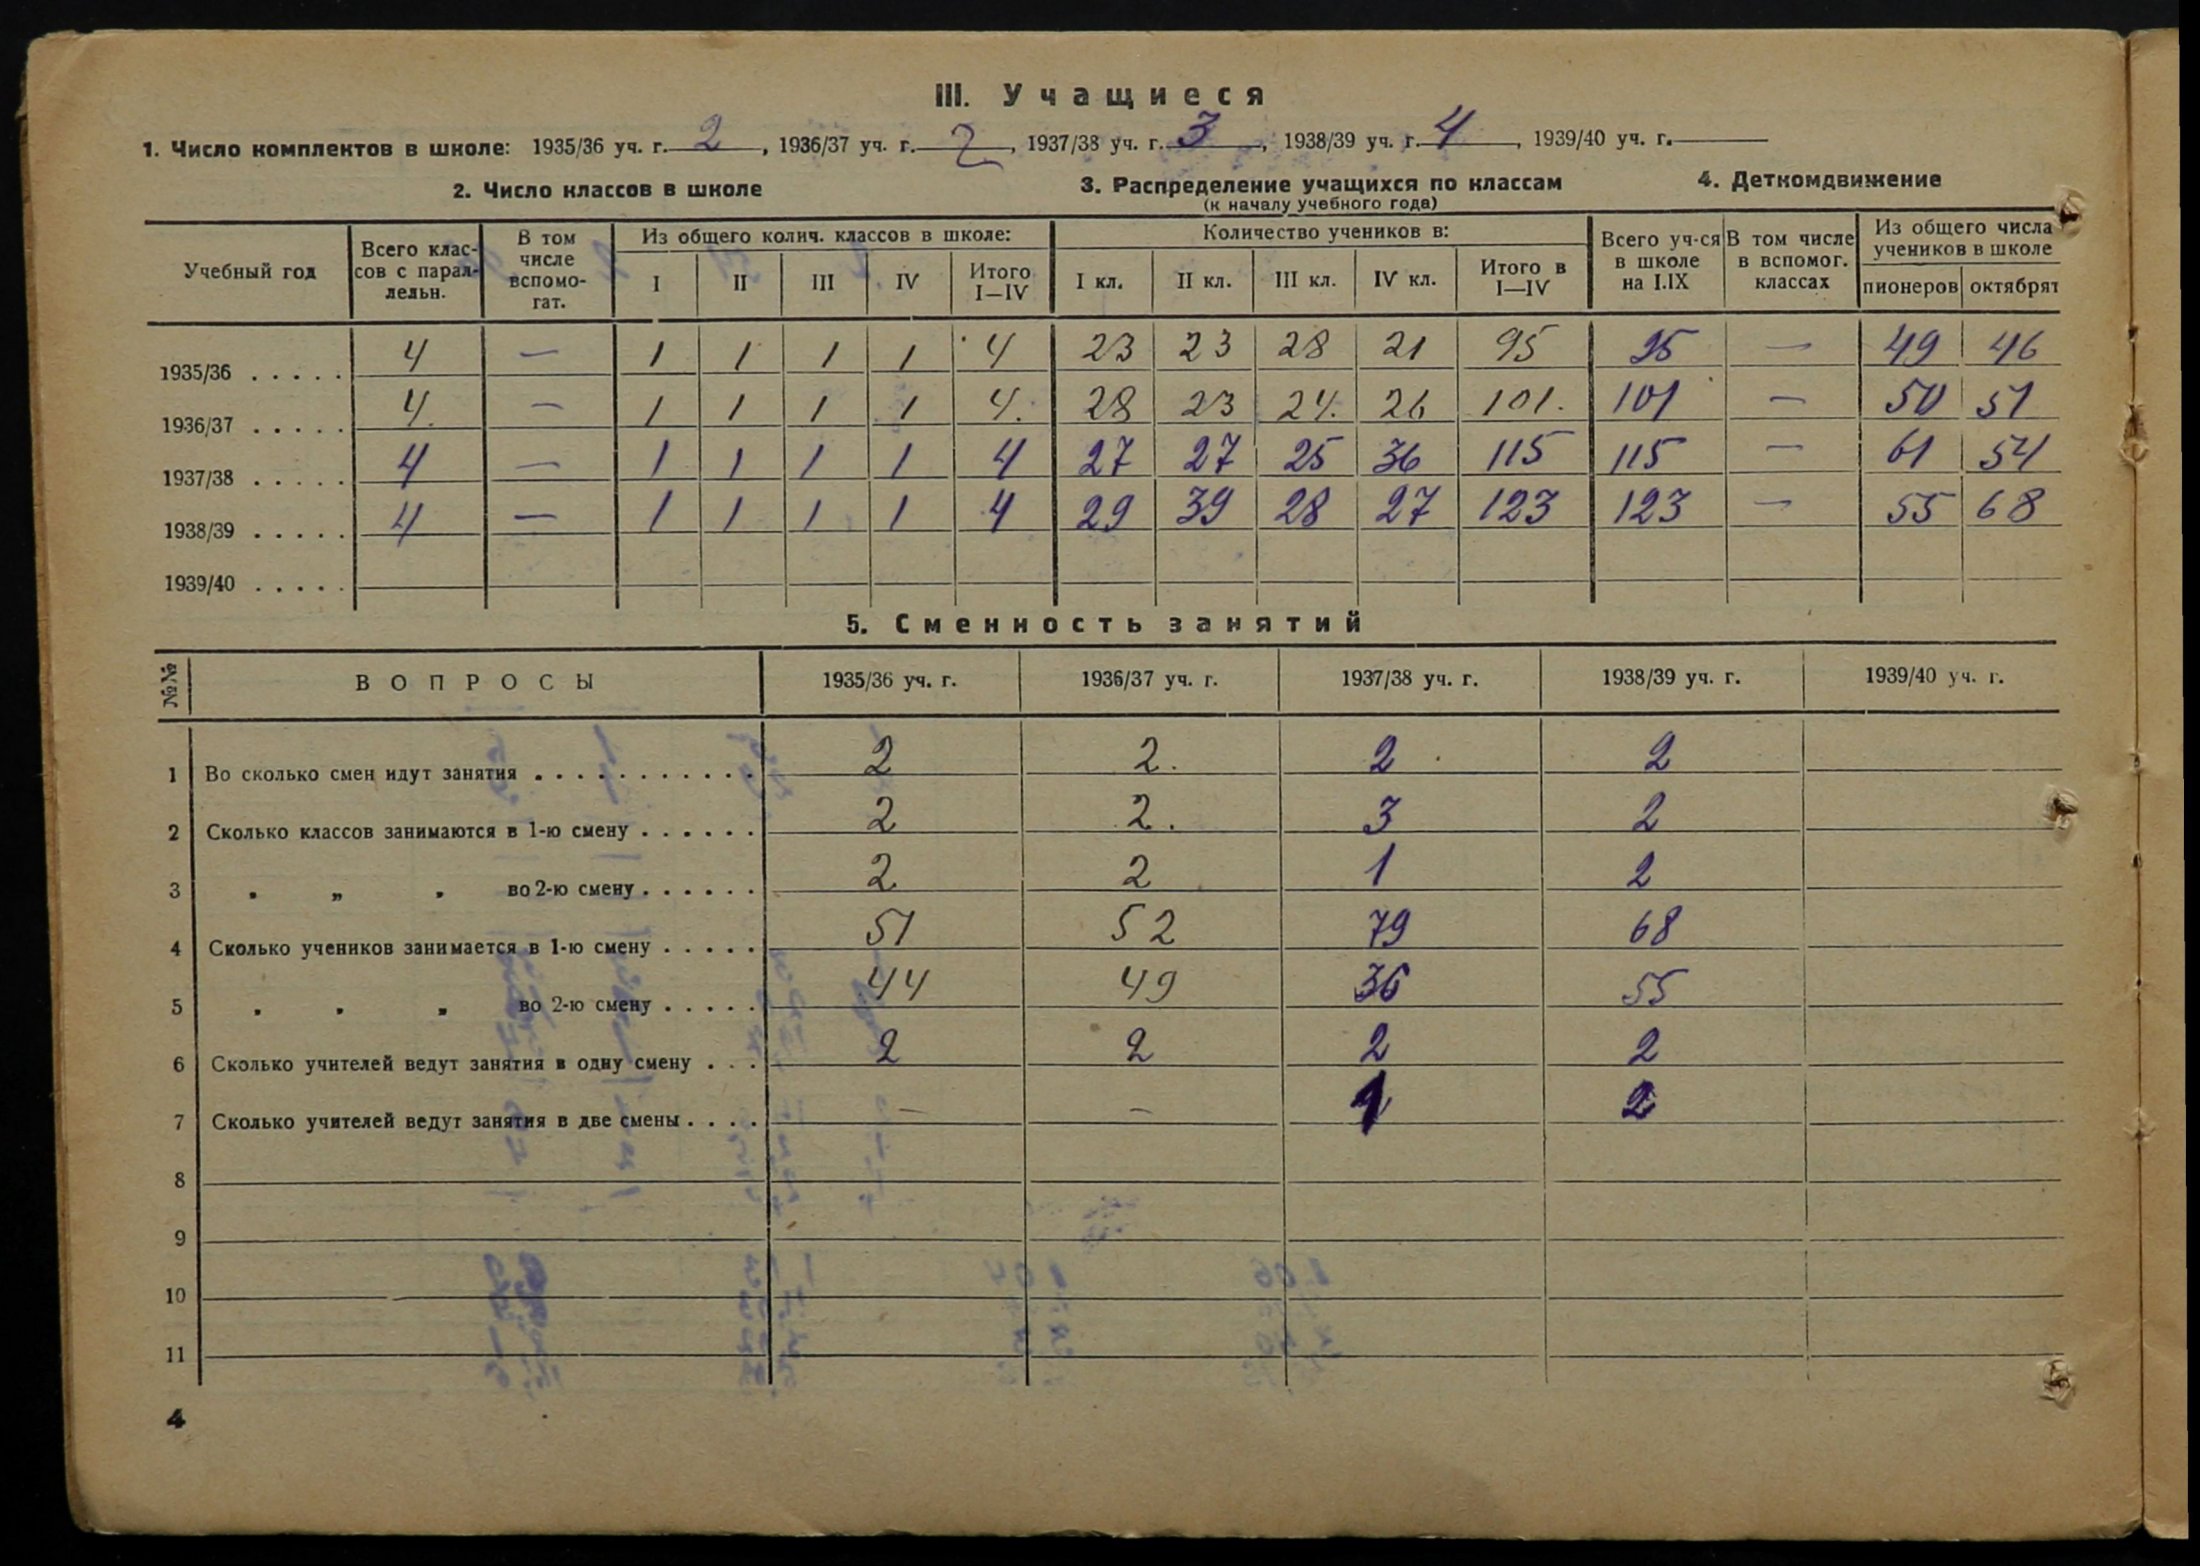 III. Учащиеся
1. Число комплектов в школе: 1935/36 уч. г. 2, 1936/37 уч. г. 2, 1937/38 уч. г. 3, 1938/39 уч. г. 4, 1939/40 уч. г.
2. Число классов в школе
3. Распределение учащихся по классам
(к началу учебного года)
4. Деткомдвижение
Учебный год
Всего клас-
сов с парал-
лельн.
В том
числе
вспомо-
гат.
Из общего колич. классов в школе:
I II III IV Итого
I—IV
Количество учеников в:
I кл. II кл. III кл. IV кл. Итого в
I—IV
Всего уч-ся
в школе
на I.IX
В том числе
в вспомог.
классах
Из общего числа
учеников в школе
пионеров октябрят
1935/36 . . . . . 4 — 1 1 1 1 4 23 23 28 21 95 95 — 49 46
1936/37 . . . . . 4. — 1 1 1 1 4. 28 23 24. 26 101. 101 — 50 51
1937/38 . . . . . 4 — 1 1 1 1 4 27 27 25 36 115 115 — 61 54
1938/39 . . . . . 4 — 1 1 1 1 4 29 39 28 27 123 123 — 55 68
1939/40 . . . . .
5. Сменность занятий
№№ ВОПРОСЫ 1935/36 уч. г. 1936/37 уч. г. 1937/38 уч. г. 1938/39 уч. г. 1939/40 уч. г.
1 Во сколько смен идут занятия . . . . . . . . . . . 2 2. 2 2
2 Сколько классов занимаются в 1-ю смену . . . . . . 2 2. 3 2
3 „ „ „ во 2-ю смену . . . . . . 2 2 1 2
4 Сколько учеников занимается в 1-ю смену . . . . . 51 52 79 68
5 „ „ „ во 2-ю смену . . . . . 44 49 36 55
6 Сколько учителей ведут занятия в одну смену . . . 2 2 2 2
7 Сколько учителей ведут занятия в две смены . . . . — — 1 2
8
9
10
11
4